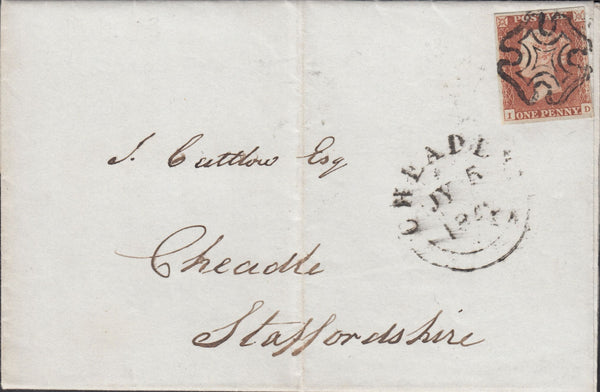 POSTAGE
I D
ONE PENNY
J. Cuttlow Esq
CHEADLE
JY 5
Cheadle
Staffordshire